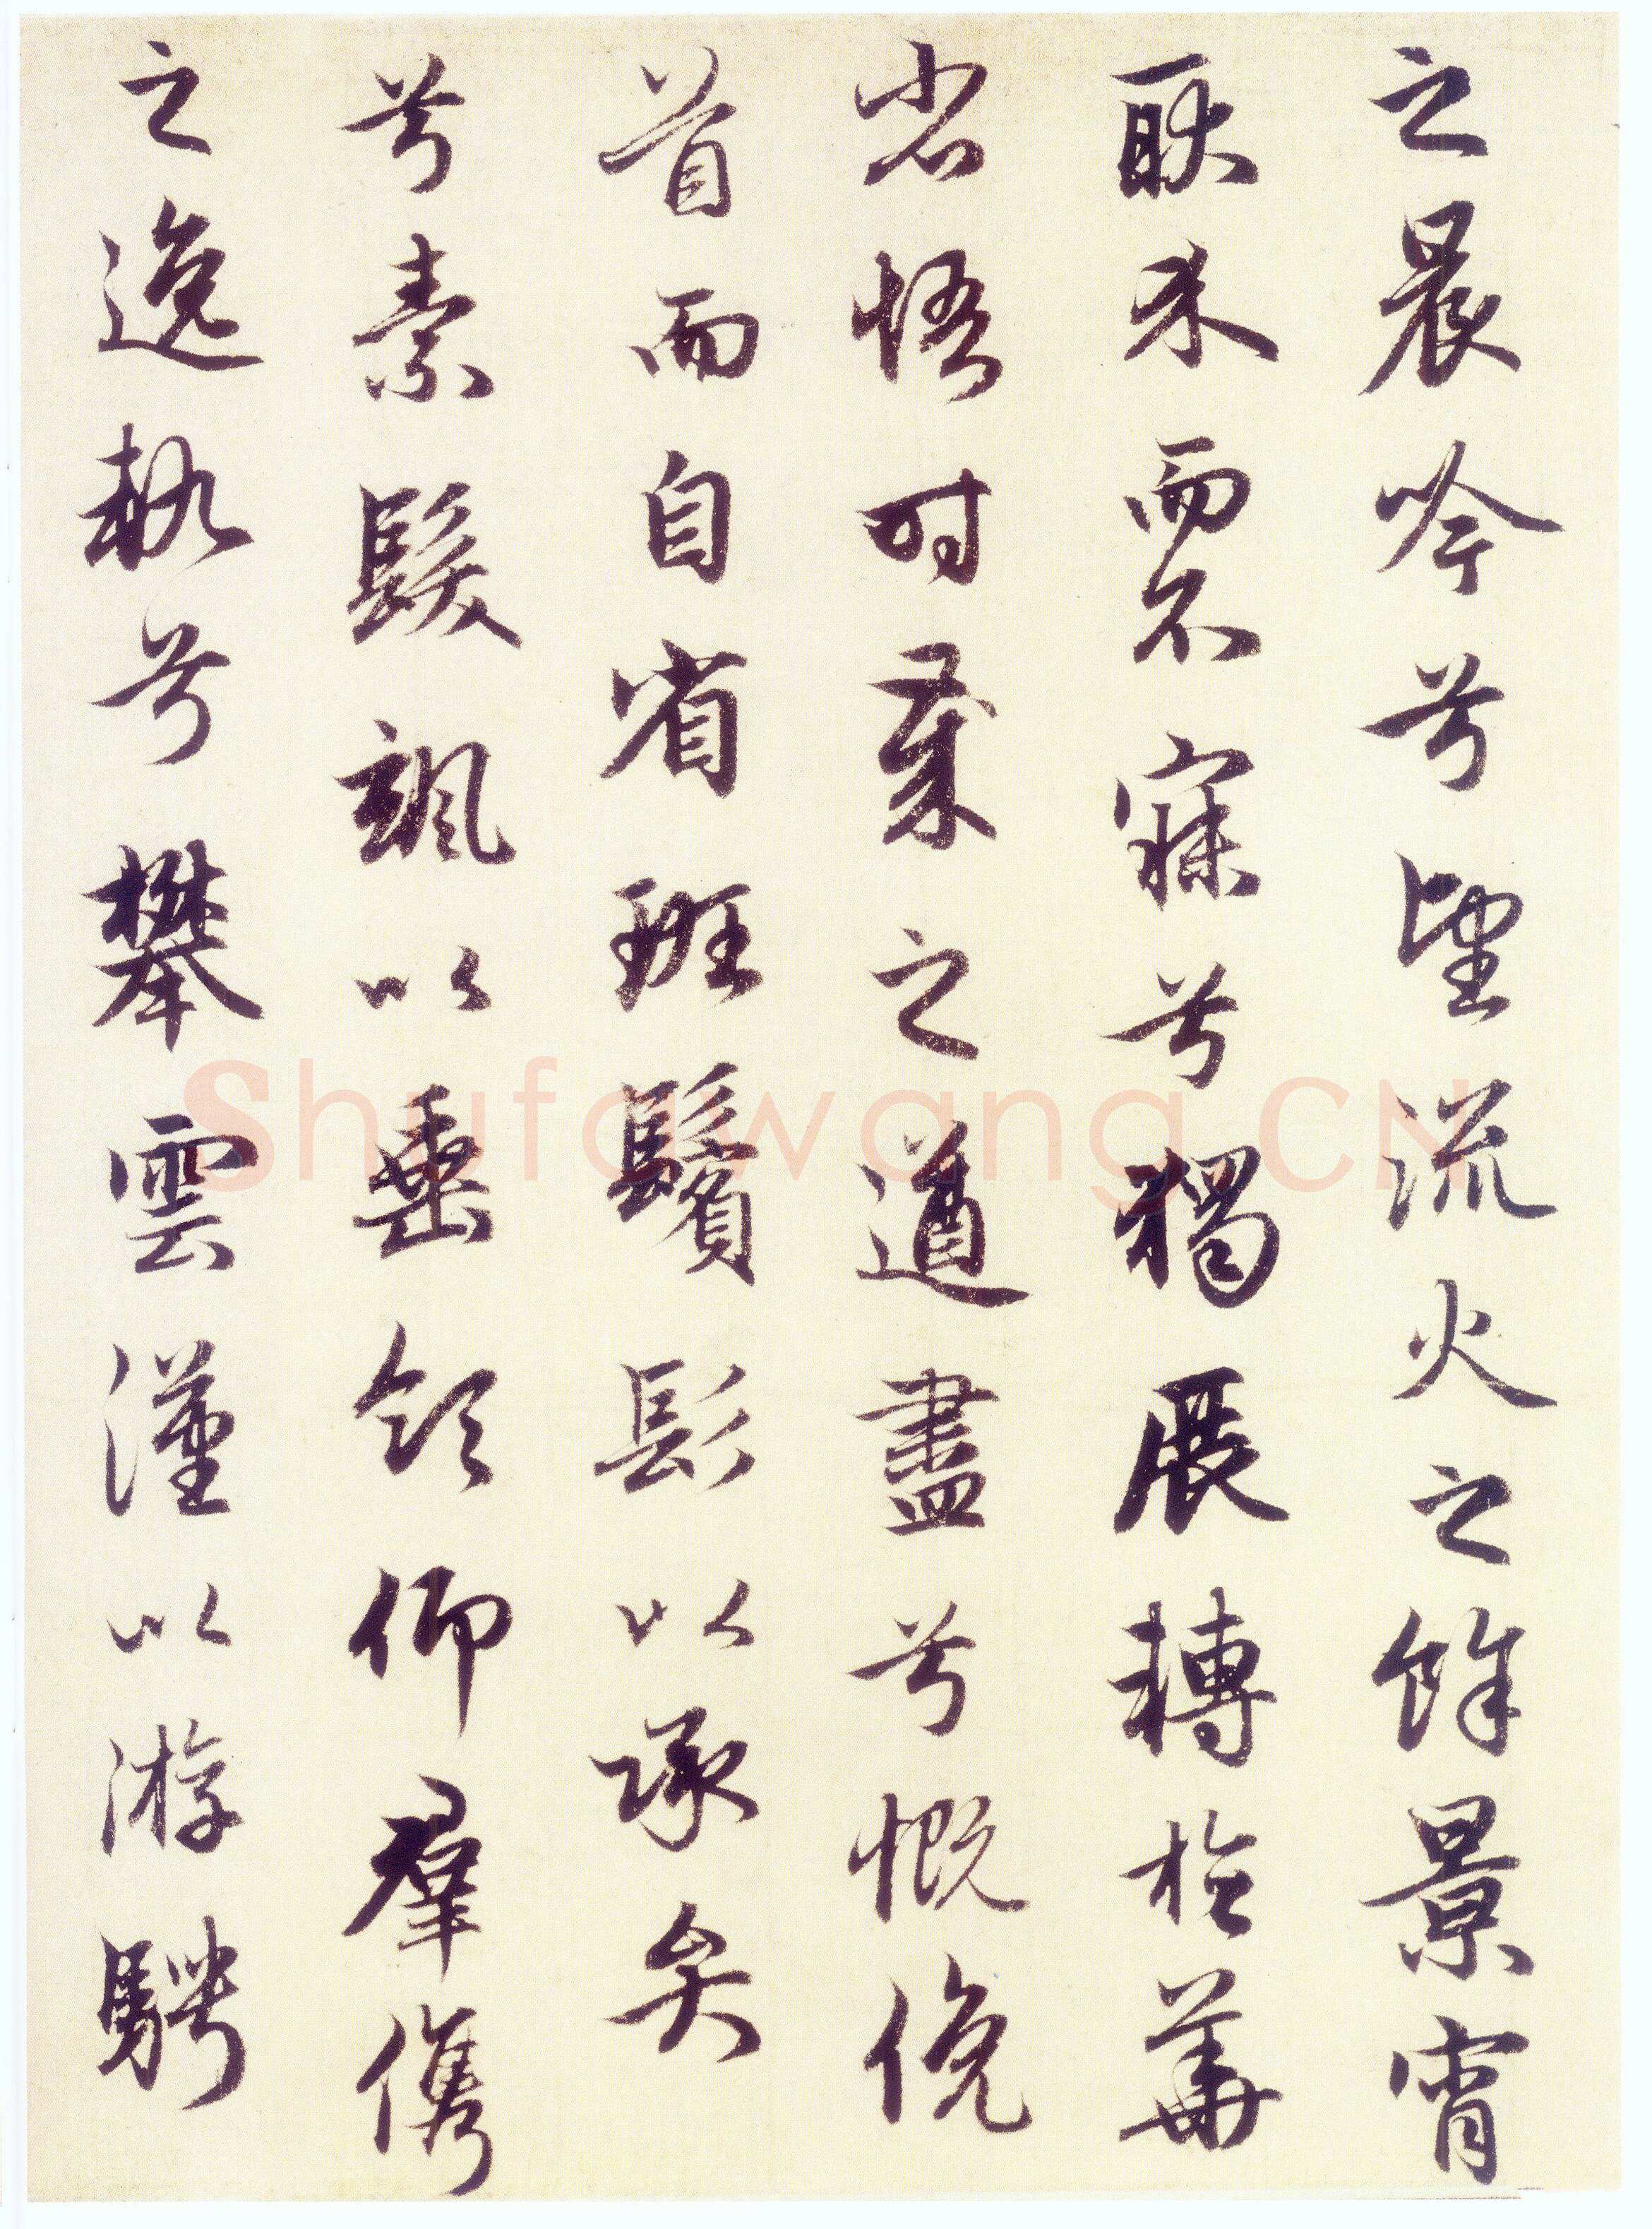 之晨吟兮望流火之餘景宵
耿介而不寐兮獨展轉於華
省悟時歲之遒盡兮慨俛
首而自省斑鬢髟以承弁
兮素髮颯以垂領仰群儁
之逸軌兮攀雲漢以游騁
Shufawang.CN